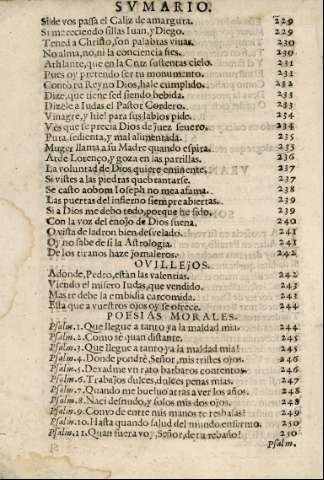 SVMARIO.
Si de vos passa el Caliz de amargura. 229
Si mereciendo sillas Iuan, y Diego. 229
Tened a Christo, son palabras viuas. 230
No alma, no, ni la conciencia fies. 230
Athlante, que en la Cruz sustentas cielo. 231
Pues oy pretendo ser tu monumento. 231
Con tu Reyno Dios, hale cumplido. 232
Dize, que tiene sed siendo bebida. 233
Dizele a Iudas el Pastor Cordero. 233
Vinagre, y hiel para sus labios pide. 233
Ves que se precia Dios de juez seuero. 234
Pura, sedienta, y mal alimentada. 235
Muger llama a su Madre quando espira. 235
Arde Lorenço, y goza en las parrillas. 236
La voluntad de Dios quiere eminente. 237
Si vistes a las piedras quebrantarse. 237
Se casto ao bom Ioseph no mea afama. 238
Las puertas del infierno siempre abiertas. 239
Si a Dios me debo todo, porque he sido. 239
Con la voz del enojo de Dios suena. 240
O vista de ladron bien desvelado. 241
Oy no sabe de si la Astrologia. 241
De los tiranos haze jornaleros. 242
OVILLEJOS.
Adonde, Pedro, estàn las valentias. 242
Viendo el misero Iudas, que vendido. 243
Mas te debe la embidia carcomida. 243
Esta que a vuestros ojos oy se ofrece. 244
POESIAS MORALES.
Psalm. 1. Que llegue a tanto ya la maldad mia. 244
Psalm. 2. Como sè quan distante. 245
Psalm. 3. Que llegue a tanto ya la maldad mia! 245
Psalm. 4. Donde pondrè, Señor, mis tristes ojos. 246
Psalm. 5. Dexadme vn rato barbaros contentos. 246
Psalm. 6. Trabajos dulces, dulces penas mias. 247
Psalm. 7. Quando me bueluo atras a ver los años. 248
Psalm. 8. Nací desnudo, y solos mis dos ojos. 248
Psalm. 9. Como de entre mis manos te resbalas! 249
Psalm. 10. Hasta quando salud del mundo enfermo. 250
Psalm. 11. Quan fuera voy, Señor, de tu rebaño! 250
Psalm.